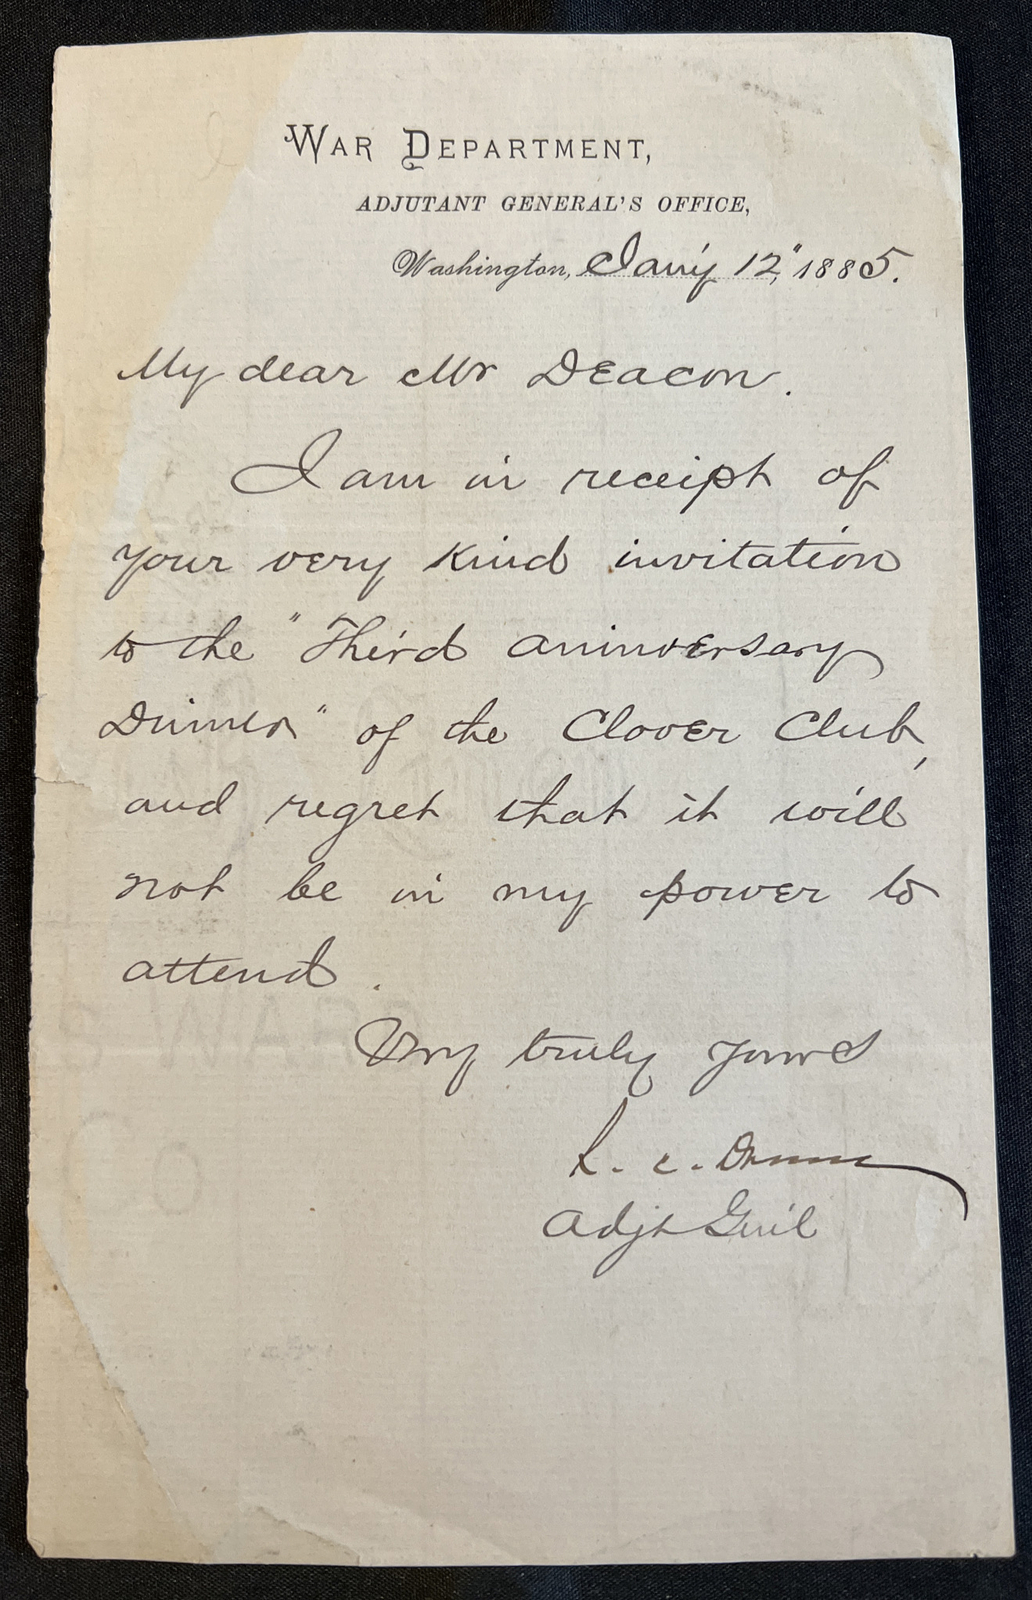 WAR DEPARTMENT,
ADJUTANT GENERAL'S OFFICE,
Washington, Jan'y 12", 1885.
My dear Mr Deacon.
I am in receipt of
your very kind invitation
to the "Third anniversary
Dinner" of the Clover Club,
and regret that it will
not be in my power to
attend.
Very truly yours
R. C. Drum
Adjt Gen'l